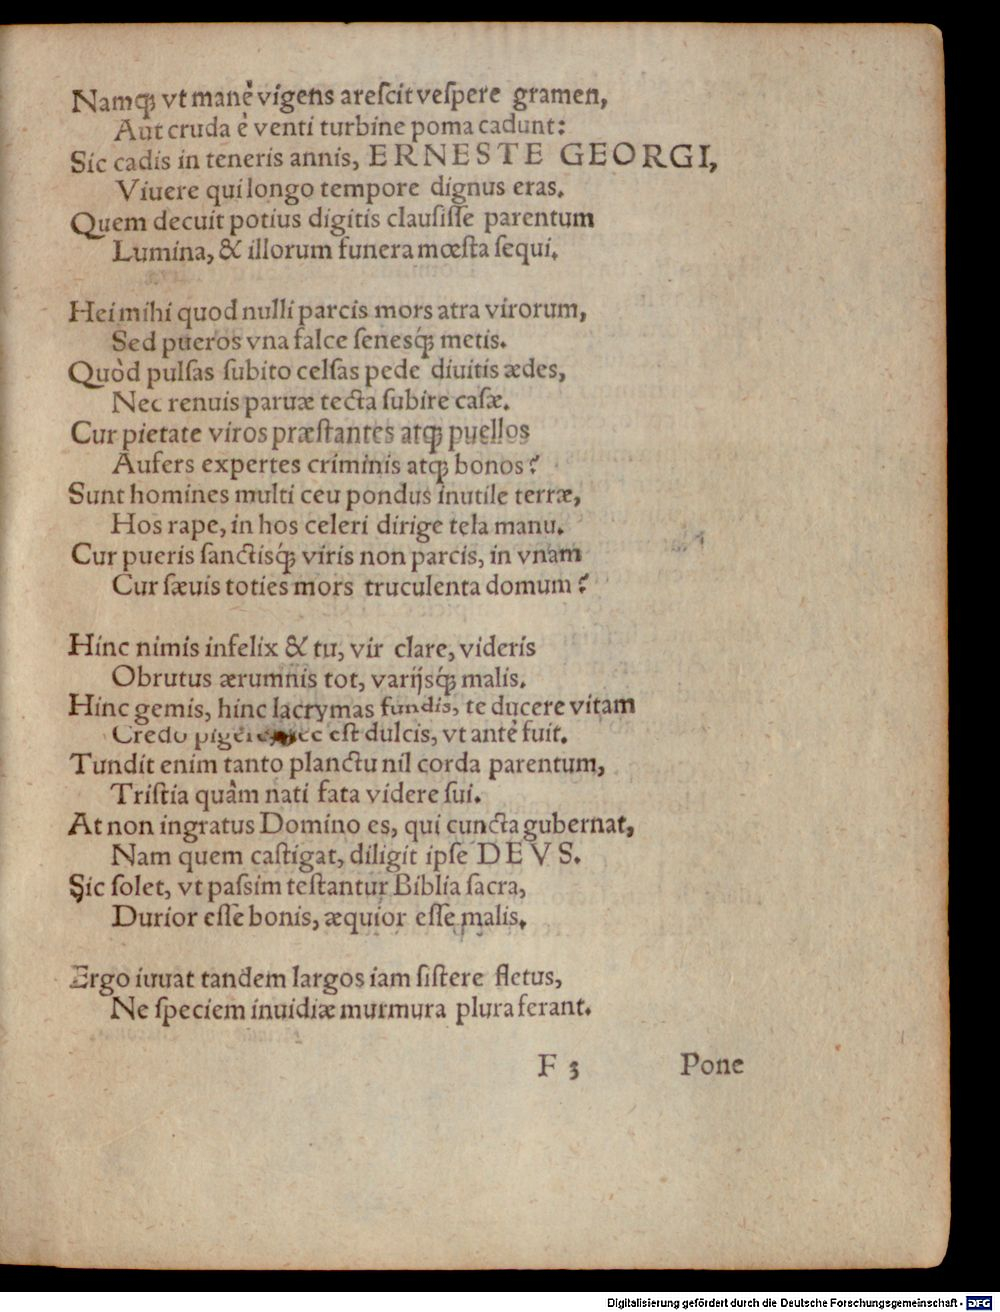 Namq́; vt manè vigens areſcit veſpere gramen,
Aut cruda è venti turbine poma cadunt:
Sic cadis in teneris annis, ERNESTE GEORGI,
Viuere qui longo tempore dignus eras.
Quem decuit potius digitis clauſiſſe parentum
Lumina, & illorum funera mœſta ſequi.
Hei mihi quod nulli parcis mors atra virorum,
Sed pueros vna falce ſenesq́; metis.
Quòd pulſas ſubito celſas pede diuitis ædes,
Nec renuis paruæ tecta ſubire caſæ.
Cur pietate viros præſtantes atq; puellos
Aufers expertes criminis atq; bonos?
Sunt homines multi ceu pondus inutile terræ,
Hos rape, in hos celeri dirige tela manu.
Cur pueris ſanctisq́; viris non parcis, in vnam
Cur ſæuis toties mors truculenta domum?
Hinc nimis infelix & tu, vir clare, videris
Obrutus ærumnis tot, varijsq́; malis.
Hinc gemis, hinc lacrymas fundis, te ducere vitam
Credo eſt dulcis, vt antè fuit.
Tundit enim tanto planctu nil corda parentum,
Triſtia quàm nati fata videre ſui.
At non ingratus Domino es, qui cuncta gubernat,
Nam quem caſtigat, diligit ipſe DEVS.
Sic ſolet, vt paſsim teſtantur Biblia ſacra,
Durior eſſe bonis, æquior eſſe malis.
Ergo iuuat tandem largos iam ſiſtere fletus,
Ne ſpeciem inuidiæ murmura plura ferant.
F 3 Pone
Digitalisierung gefördert durch die Deutsche Forschungsgemeinschaft - DFG